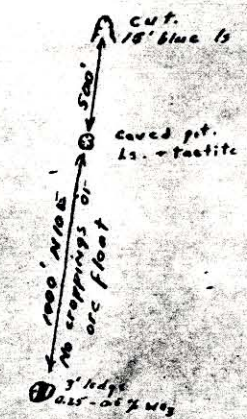 cut.
15' blue ls
500'
caved pit.
Ls. + tactite
1000' N10E
No croppings or
ore float
3' ledge
0.25 - 0.5 % WO3